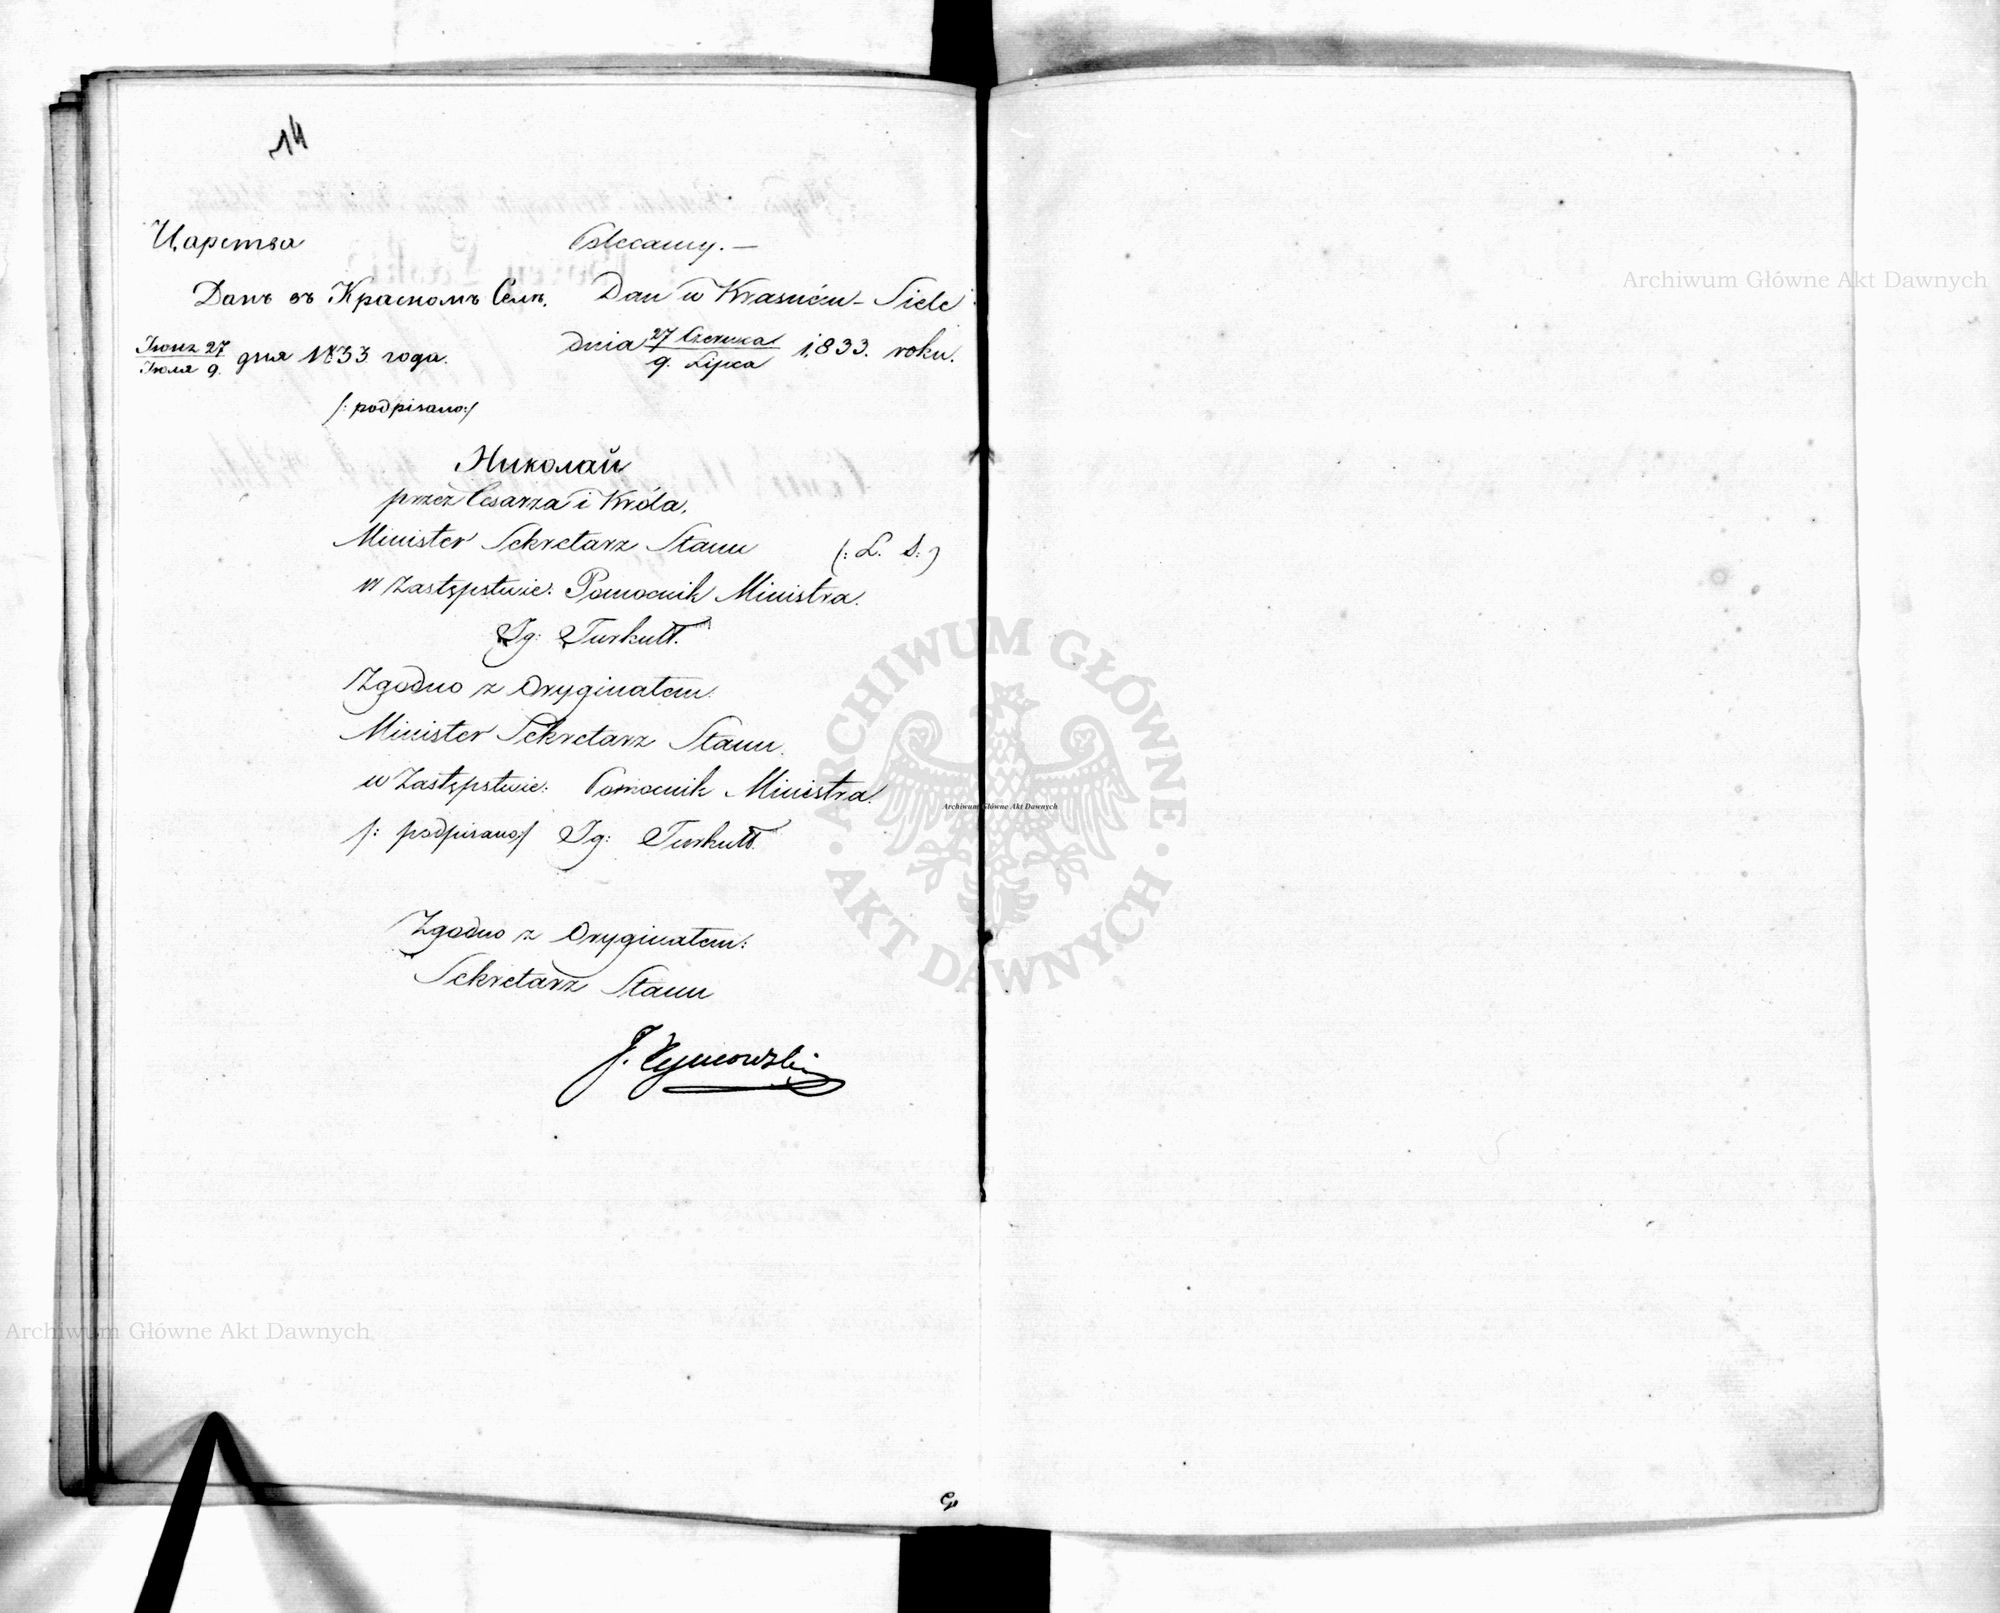 14
Царства
Данъ въ Красномъ Селѣ,
Іюня 27
Іюля 9. дня 1833 года.
Polecamy. —
Dan w Krasném-Siele
dnia 27 Czerwca
9. Lipca 1833. roku.
/: podpisano:/
Николай
przez Cesarza i Króla,
Minister Sekretarz Stanu (: L. S:)
w Zastępstwie: Pomocnik Ministra.
Ig: Turkułł.
Zgodno z Oryginałem:
Minister Sekretarz Stanu.
w Zastępstwie: Pomocnik Ministra.
/: podpisano:/ Ig: Turkułł.
Zgodno z Oryginałem:
Sekretarz Stanu
J. Tymowski
Archiwum Główne Akt Dawnych
ARCHIWUM GŁÓWNE
AKT DAWNYCH
Archiwum Główne Akt Dawnych
Archiwum Główne Akt Dawnych